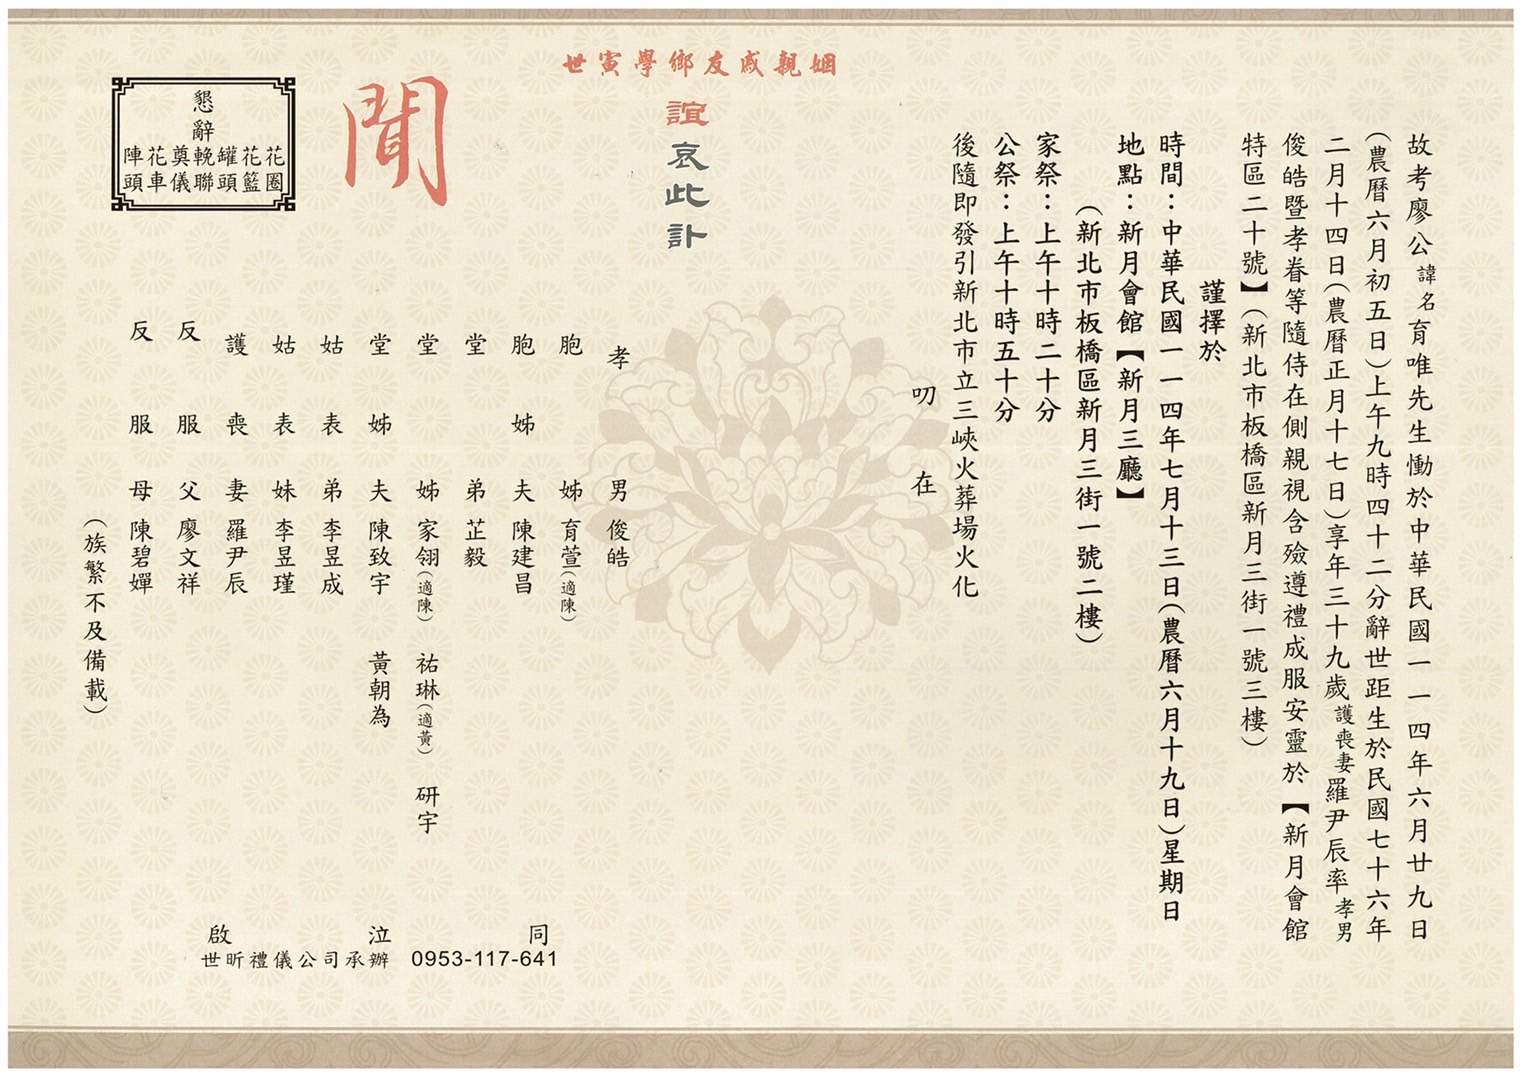 故考廖公諱名育唯先生慟於中華民國一一四年六月廿九日
(農曆六月初五日)上午九時四十二分辭世距生於民國七十六年
二月十四日(農曆正月十七日)享年三十九歲護喪妻羅尹辰率孝男
俊皓暨孝眷等隨侍在側親視含殮遵禮成服安靈於【新月會館
特區二十號】(新北市板橋區新月三街一號三樓)
謹擇於
時間：中華民國一一四年七月十三日(農曆六月十九日)星期日
地點：新月會館【新月三廳】
(新北市板橋區新月三街一號二樓)
家祭：上午十時二十分
公祭：上午十時五十分
後隨即發引新北市立三峽火葬場火化
叨在
姻親戚友鄉學寅世
誼哀此訃
聞
孝男俊皓
胞姊育萱(適陳)
胞姊夫陳建昌
堂弟芷毅
堂姊家翎(適陳) 祐琳(適黃) 研宇
堂姊夫陳致宇 黃朝為
姑表弟李昱成
姑表妹李昱瑾
護喪妻羅尹辰
反服父廖文祥
反服母陳碧嬋
(族繁不及備載)
同泣啟
懇辭
花圈
花籃
罐頭
輓聯
奠儀
花車
陣頭
世昕禮儀公司承辦 0953-117-641